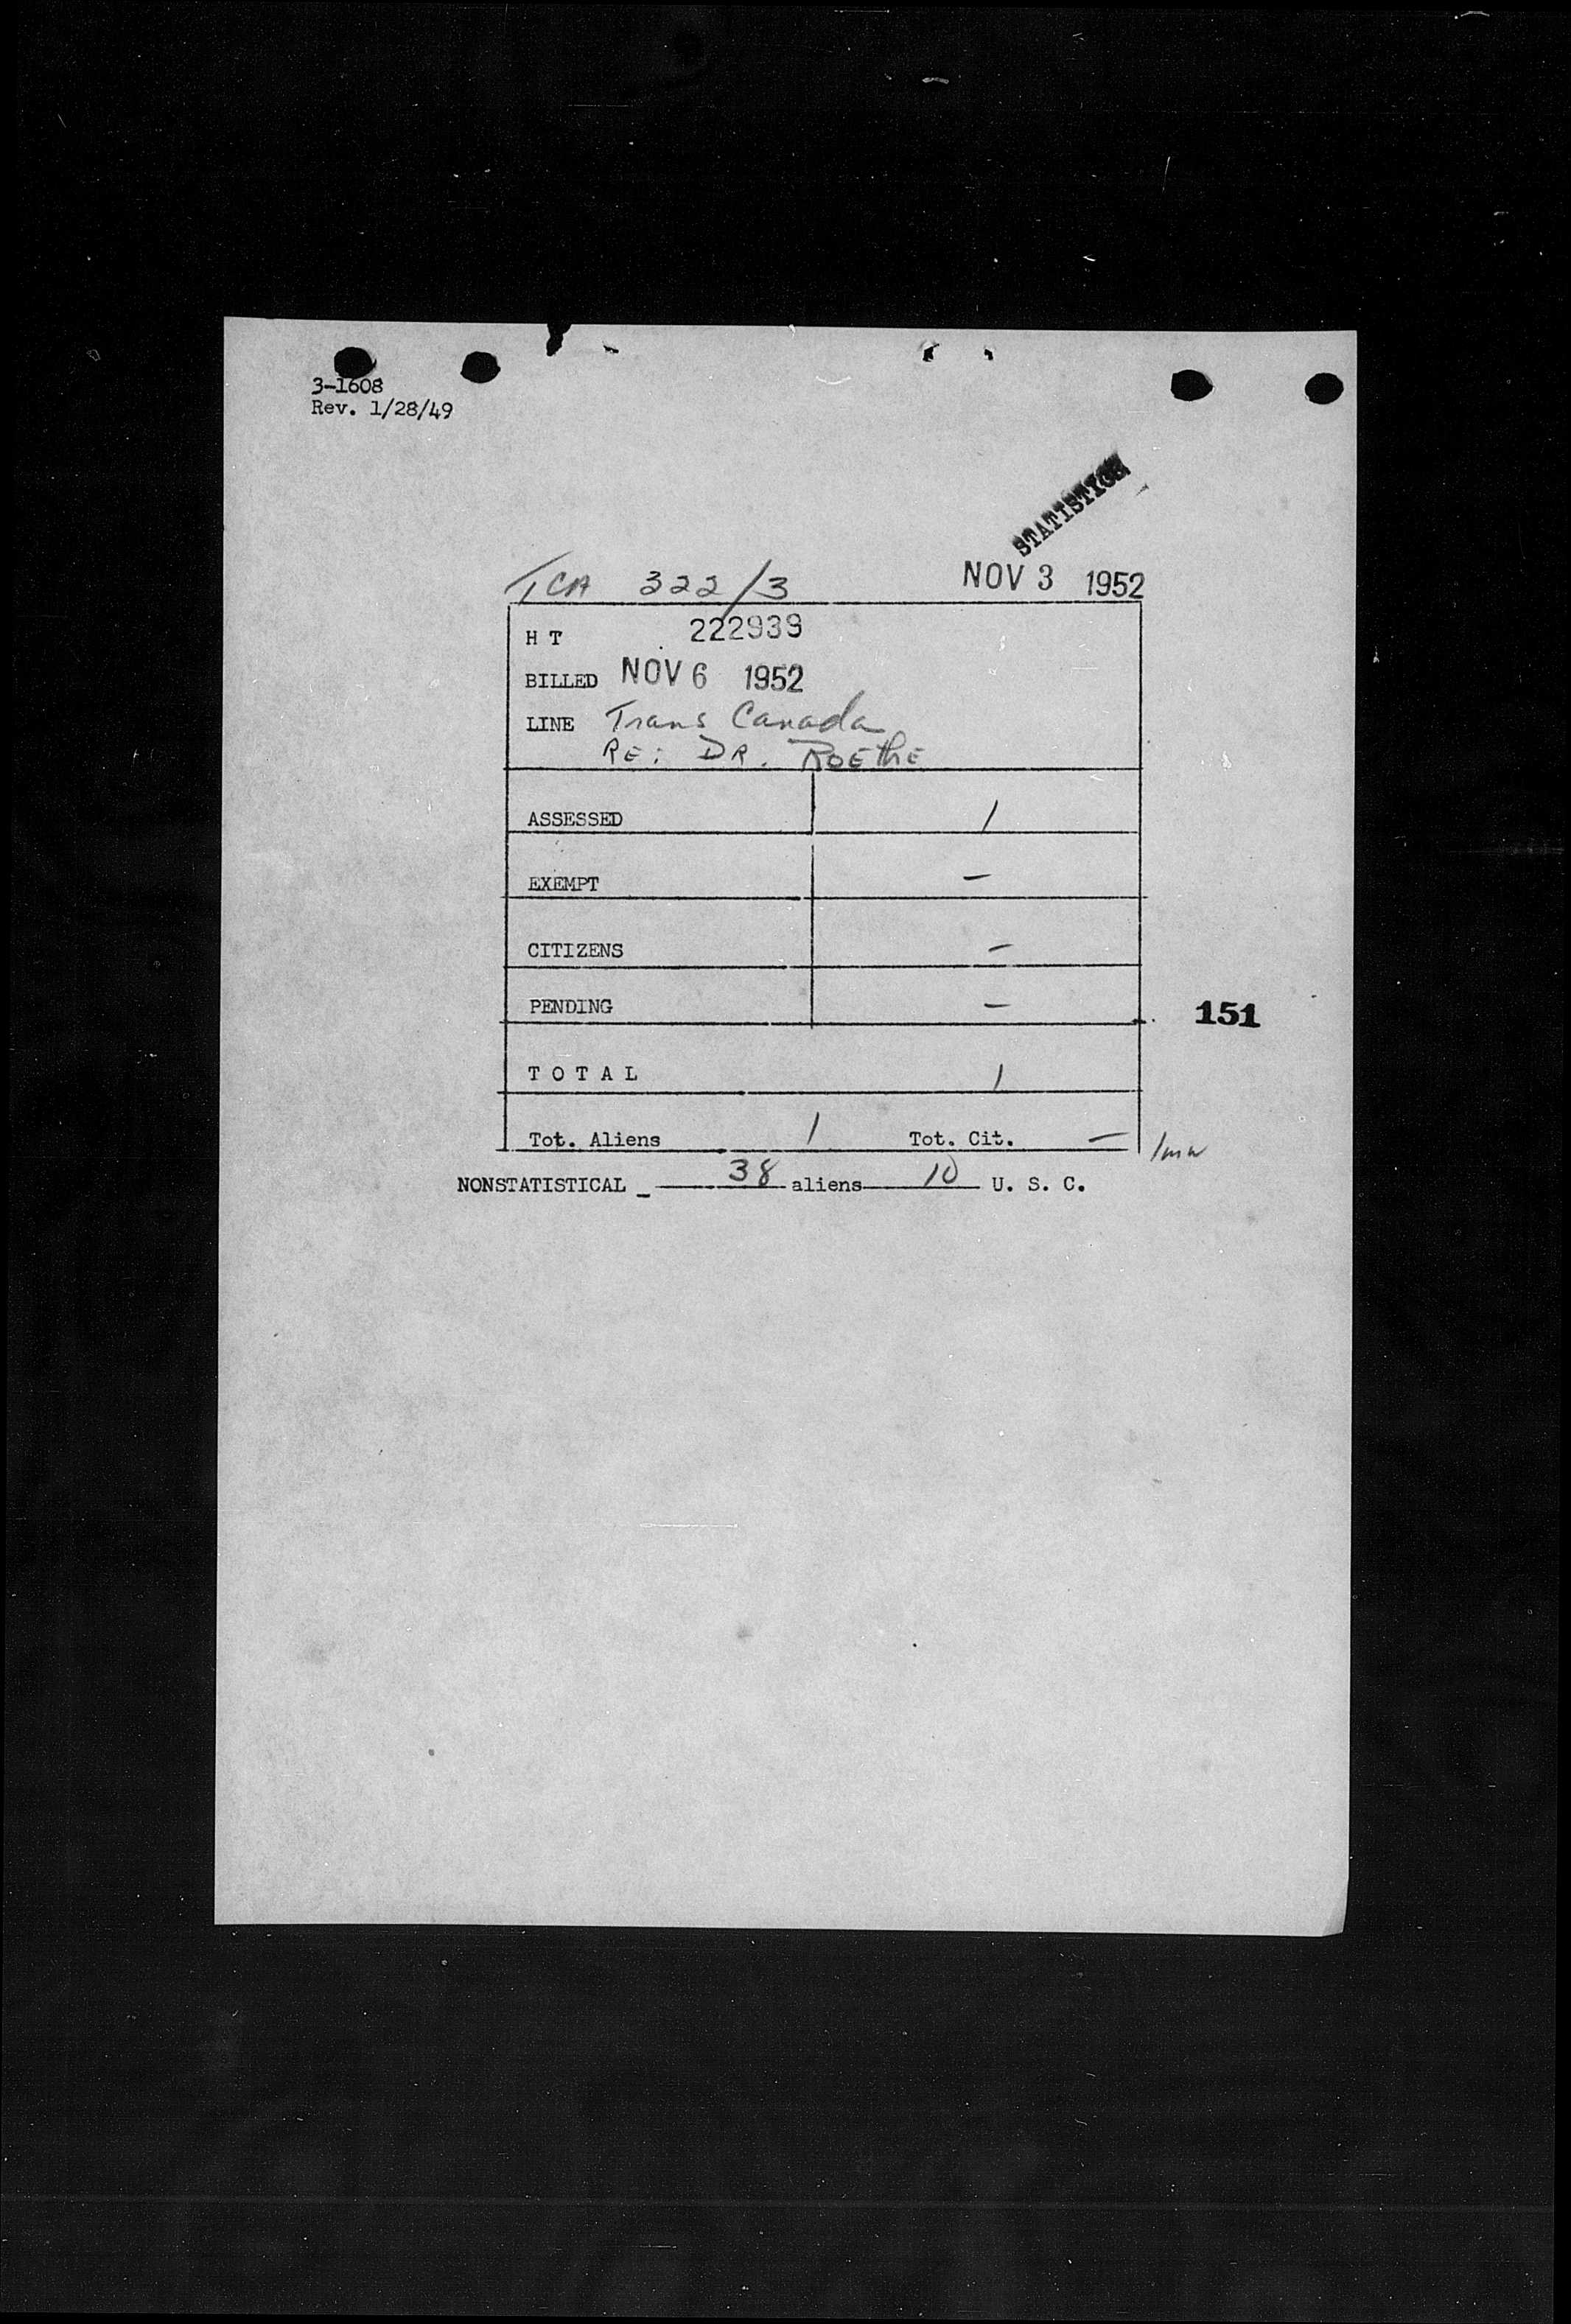 3-1608
Rev. 1/28/49
STATISTICS
TCA 322/3 NOV 3 1952
H T 222939
BILLED NOV 6 1952
LINE Trans Canada
RE: DR. ROEthE
ASSESSED 1
EXEMPT -
CITIZENS -
PENDING -
151
T O T A L 1
Tot. Aliens 1 Tot. Cit. -
NONSTATISTICAL 38 aliens 10 U. S. C.